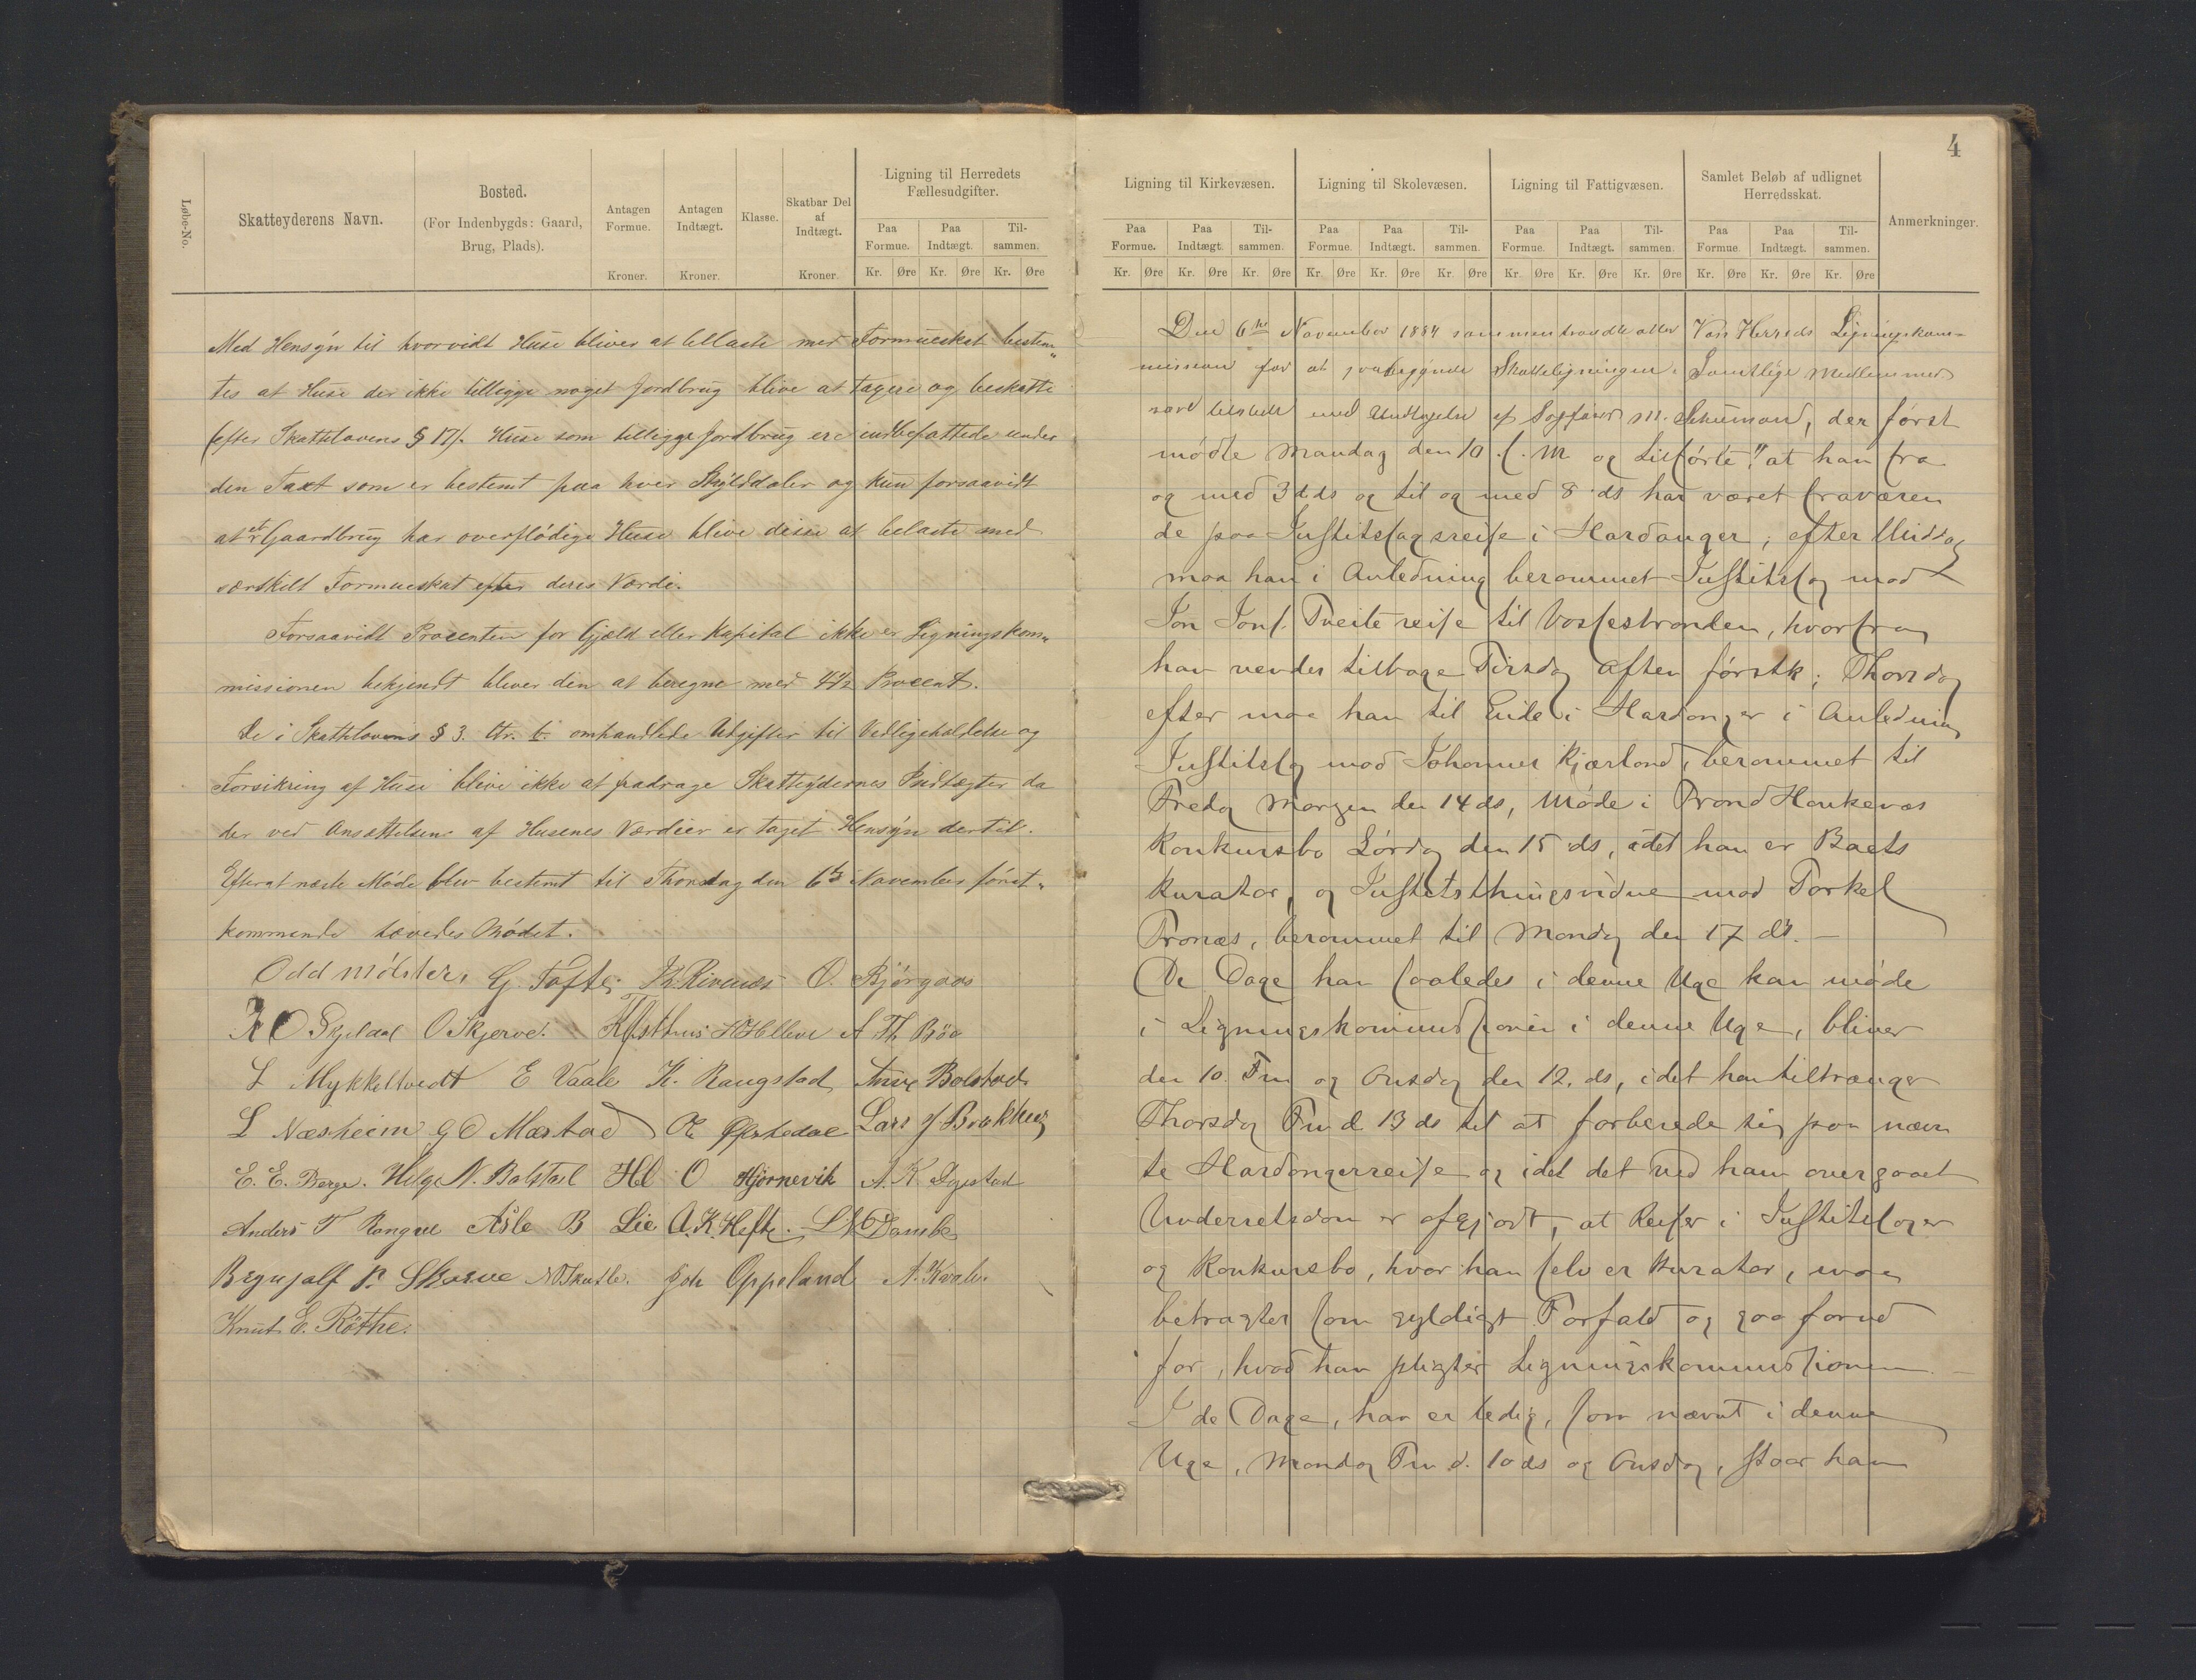 Løbe-No.
Skatteyderens Navn.
Bosted.
(For Indenbygds: Gaard,
Brug, Plads).
Antagen
Formue.
Kroner.
Antagen
Indtægt.
Kroner.
Klasse.
Skatbar Del
af
Indtægt.
Kroner.
Ligning til Herredets
Fællesudgifter.
Paa
Formue.
Paa
Indtægt.
Til-
sammen.
Kr. Øre Kr. Øre Kr. Øre
Med Hensÿn til hvorvidt Huse bliver at bellaste med Formueskat bestem„
tes at Huse der ikke tilligge noget Jordbrug blive at tagsere og beskatte
(efter Skattelovens § 17). Huse som tilligge Jordbrug ere indbefattede under
den Taxt som er bestemt paa hver Skÿlddaler og kun forsaavidt
at et Gaardbrug har overflødige Huse blive disse at belaste med
særskilt Formueskat efter deres Værdi.
Forsaavidt Procenten for Gjæld eller Kapital ikke er Ligningskom„
missionen bekjendt bliver den at beregne med 4½ Procent.
De i Skattelovens § 3. Ltr. b. omhandlede Udgifter til Vedligeholdelse og
Forsikring af Huse blive ikke at fradrage Skatteÿdernes Indtægter da
der ved Ansættelsen af Husenes Værdier er taget Hensÿn dertil.
Efterat næste Møde blev bestemt til Thorsdag den 6te November først„
kommende hævedes Mødet.
Odd Mølster, G. Tofte, R. Rivenæs O. Bjørgaas
O Skjerve. H Helleve A Th. Bøe
L Mykkeltvedt E Vaale K. Raugstad Bolstad
L Næsheim G O Mæstad Lars J Brækhus
E. E. Berge. Helge N. Bolstad Hl O Hjørnevik A. K
Anders T Asle B Lie A. K. Hefte.
Brynjolf P. Skorve N Skutle. Joh Oppeland A. Kvale.
Knut E. Røthe.
4
Ligning til Kirkevæsen.
Ligning til Skolevæsen.
Ligning til Fattigvæsen.
Samlet Beløb af udlignet
Herredsskat.
Anmerkninger.
Paa
Formue.
Paa
Indtægt.
Til-
sammen.
Paa
Formue.
Paa
Indtægt.
Til-
sammen.
Paa
Formue.
Paa
Indtægt.
Til-
sammen.
Paa
Formue.
Paa
Indtægt.
Til-
sammen.
Kr. Øre Kr. Øre Kr. Øre Kr. Øre Kr. Øre Kr. Øre Kr. Øre Kr. Øre Kr. Øre Kr. Øre Kr. Øre Kr. Øre
Den 6te November 1884 sammentraadte atter Voss Herreds Ligningskom-
mission for at paabegynde Skatteligningen. Samtlige Medlemmer
vare tilstede med Undtagelse af Sagfører M. Schumann, der først
mødte Mandag den 10 f. M og tilførte: "at han fra
og med 3die ds og til og med 8 ds har været fraværen
de paa Justitssagsreise i Hardanger; efter Middag
maa han i Anledning berammet Justitssag mod
Jon Jons. Tveite reise til Vossestranden, hvorfra
han vender tilbage Tirsdag Aften førstk; Thorsdag
efter maa han til Eide i Hardanger i Anledning
Justitssag mod Johannes Kjærland, berammet til
Fredag Morgen den 14 ds, Møde i Trond Haukenæs
Konkursbo Lørdag den 15 ds, idet han er Boets
Kurator, og Justitsthingsvidne mod Torkel
Tronæs, berammet til Mandag den 17 ds. —
De Dage han saaledes i denne Uge kan møde
i Ligningskommissionen i denne Uge, bliver
den 10. Fm og Onsdag den 12. ds, idet han tiltrænger
Thorsdag Fm d 13 ds til at forberede sig paa nævn
te Hardangerreise og idet det ved ham overgaaet
Underretsdom er afgjort, at Reiser i Justitssager
og Konkursbo, hvor han selv er Kurator, maa
betragtes som gyldigt Forfald og gaa forud
for, hvad han pligter Ligningskommissionen
I de Dage, han er ledig, som nævnt i denne
Uge, Mandag Fm d. 10 ds og Onsdag, staar han